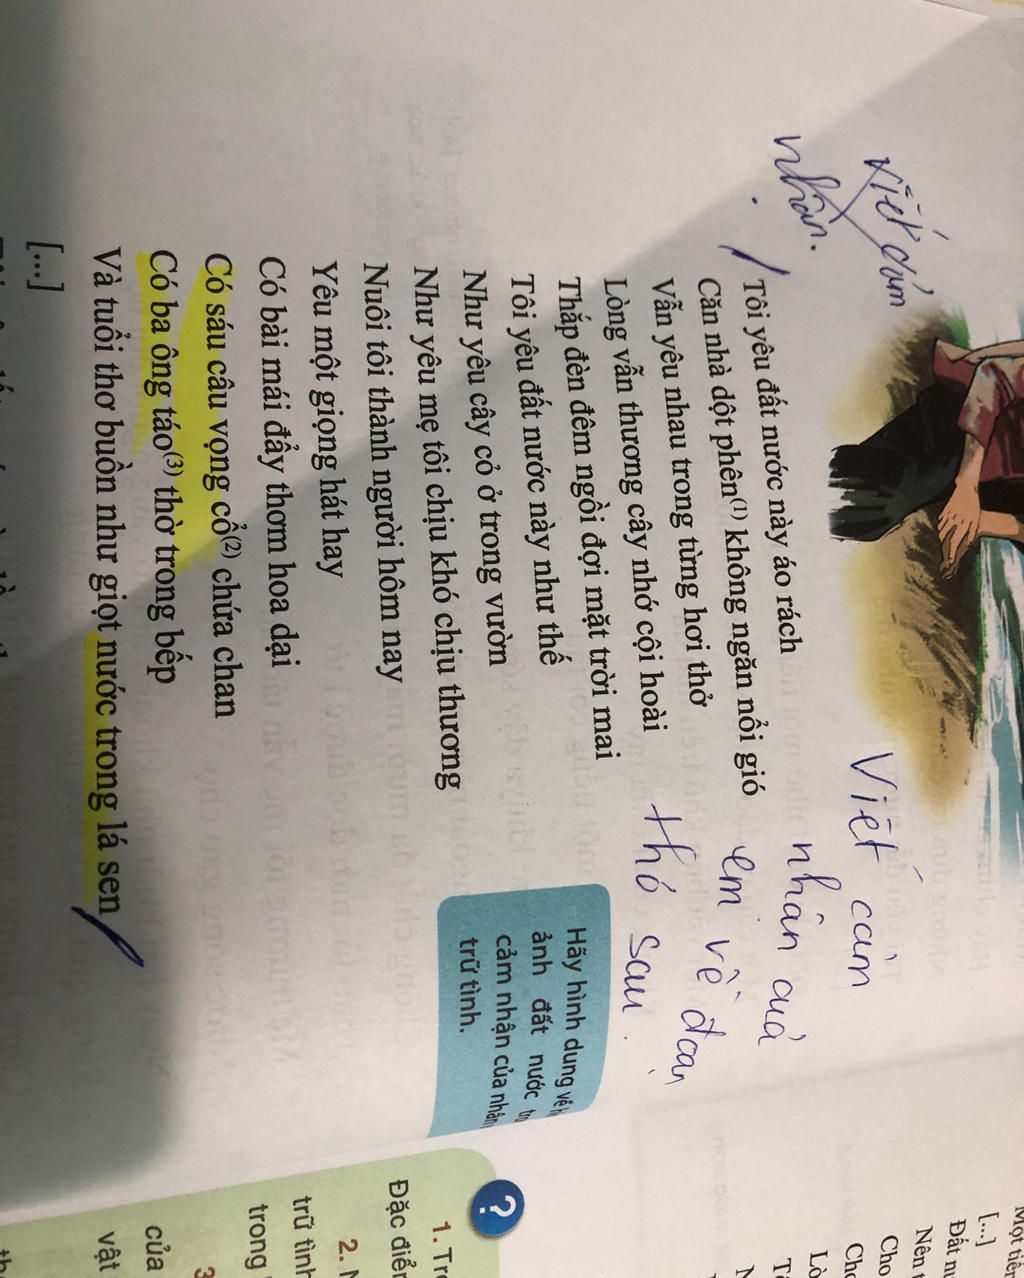 viết cảm
nhận.
Viết cảm
nhận của
em về đoạn
thơ sau.
Tôi yêu đất nước này áo rách
Căn nhà dột phên(1) không ngăn nổi gió
Vẫn yêu nhau trong từng hơi thở
Lòng vẫn thương cây nhớ cội hoài
Thắp đèn đêm ngồi đợi mặt trời mai
Tôi yêu đất nước này như thế
Như yêu cây cỏ ở trong vườn
Như yêu mẹ tôi chịu khó chịu thương
Nuôi tôi thành người hôm nay
Yêu một giọng hát hay
Có bài mái đẩy thơm hoa dại
Có sáu câu vọng cổ(2) chứa chan
Có ba ông táo(3) thờ trong bếp
Và tuổi thơ buồn như giọt nước trong lá sen
[...]
Hãy hình dung về
ảnh đất nước
cảm nhận của nhân
trữ tình.
?
1.
Đặc điểm
2.
trữ tình
trong
3
của
vật
Một
[...]
Đất
Nên
Cho